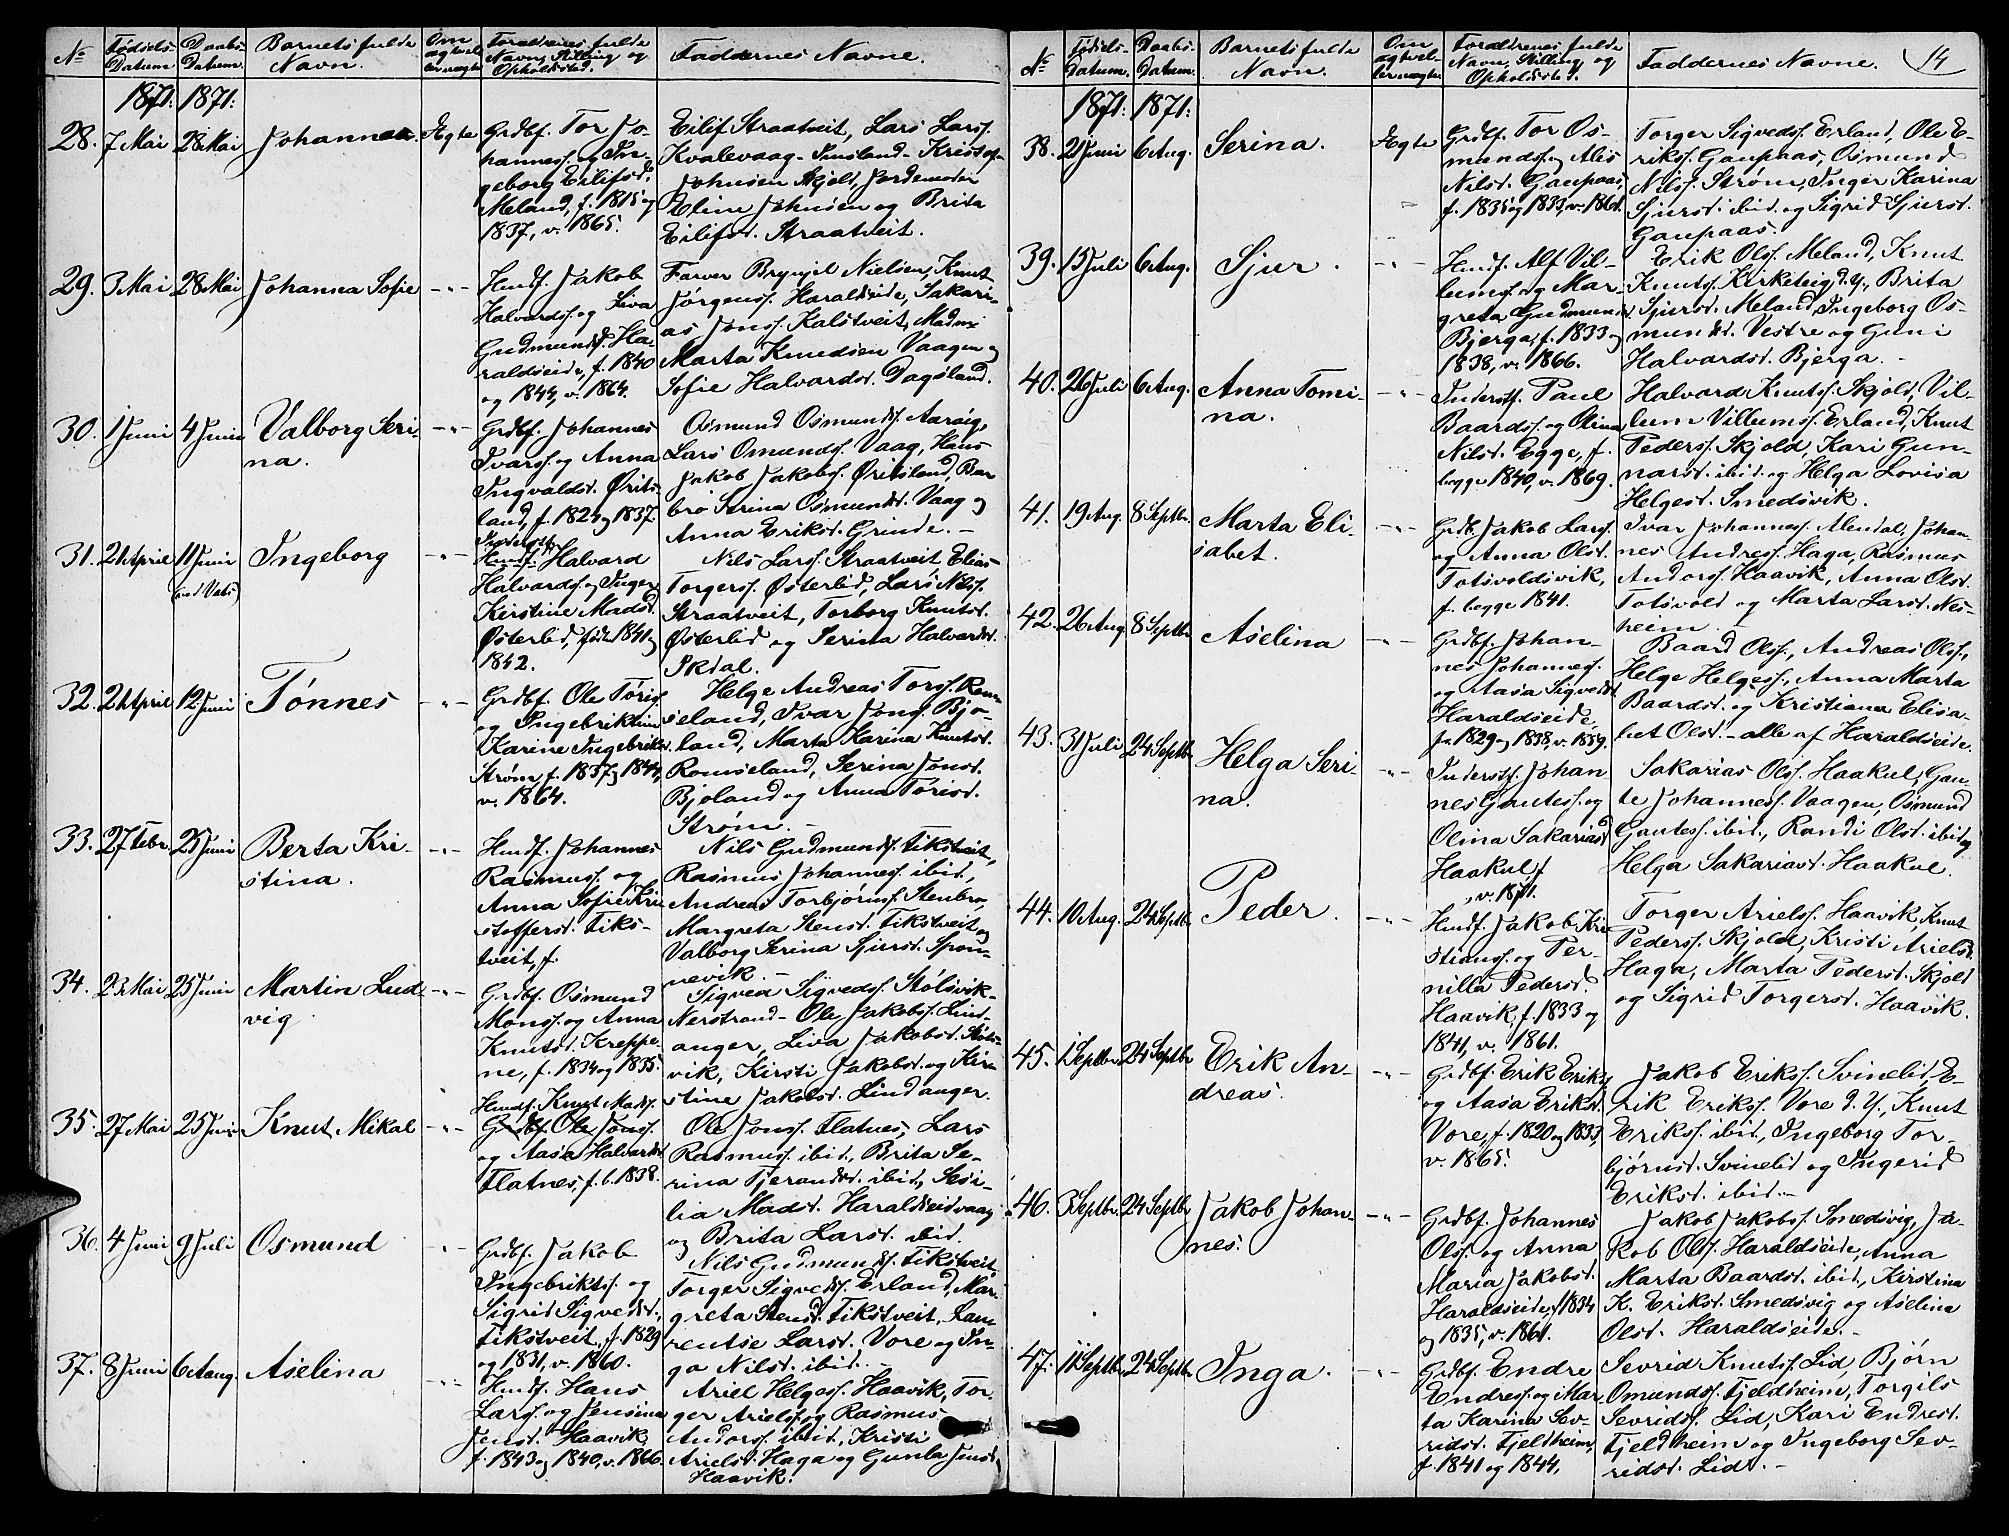 No Fødsels-Datum. Daabs-Datum. Barnets fulde Navn. Om ægte el. uægte Forældrenes fulde Navn, Stilling og Opholdsted. Faddernes Navne.
1871: 1871:
28. 7 Mai 28 Mai Johannes. Ægte Grdbf. Tor Jo-
hanness. og In-
geborg Eilifsd.
Meland, f. 1815 og
1837, v. 1865.
Eilif Straatveit, Lars Larss.
Kvalevaag - Imsland - Kristof-
Johnsen Skjold, Jordemoder
Eline Johnsen og Brita
Eilifsd. Straatveit.
29. 3 Mai 28 Mai Johanna Sofie -"- Husf. Jakob
Halvardss. og Siva
Gudmundsd. Ha-
raldseide, f. 1840
og 1844, v. 1864.
Farver Brynjel Nielsen, Knut
Jørgens. Haraldseide, Sakari-
as Jonss. Kalstveit, Madm
Marta Knudsen Vaagen og
Sofie Halvardsd. Dagsland.
30. 1 Juni 4 Juni Valborg Seri-
na. -"- Grdbf. Johannes
Ivarss. og Anna
Ingvaldsd. Ørits-
land, f. 1824 og 1837.
Osmund Osmunds. Aarsvig,
Lars Omunds. Vaag, Hans
Jakob Jakobs. Øritsland, Bar
bro Serina Osmundsd. Vaag og
Anna Eriksd. Grinde. -
31. 21 April 11 Juni
(ved Vats)
Ingeborg -"- Inderstf.
Husf. Halvard
Halvardss. og Inger
Kirstine Madsd.
Østerlid, føde 1841 og
1842.
Nils Larss. Straatveit Elias
Torgerss. Østerlid, Lars Nilss.
Straatveit, Torborg Knutsd.
Østerlid og Serina Halvardsd.
32. 21 April 12 Juni Tønnes -"- Grdbf. Ole Tøriss.
og Ingebriktine
Karine Ingebriktsd.
Strøm, f. 1837 og 1844,
v. 1864.
Helge Andreas Torss. Rom-
seland, Ivar Jons. Bjo-
land, Marta Karina Knutsd.
Romseland, Serina Jonsd.
Bjoland og Anna Tørisd.
Strøm. -
33. 27 Febr. 25 Juni Berta Kri-
stina. -"- Husf. Johannes
Rasmuss. og
Anna Sofie Kri
stoffersd. Tiks-
tveit, f.
Nils Gudmunds. Tikstveit,
Rasmus Johannes. ibid,
Andreas Torbjørns. Stenbro,
Margreta Stensd. Tikstveit og
Valborg Serina Sjursd. Spøn-
nevik. -
34. 23 Mai 25 Juni Martin Lud-
vig -"- Grdbf. Osmund
Monss. og Anna
Knutsd. Kreppe-
ne, f. 1834 og 1835.
Sigved Sigvedss. Stølsvik -
Nerstrand - Ole Jakobs. Lind-
anger, Liva Jakobsd. Støls-
vik, Kirsti Jakobsd. og Kirs
stine Jakobsd. Lindanger.
35. 27 Mai 25 Juni Knut Mikal -"- Husf. Knut Madss.
Grdbf. Ole Jons.
og Aasa Halvardsd
Flatnes, f. b. 1838.
Ole Jons. Flatnes, Lars
Rasmuss. ibid., Brita Se-
rina Tjerandsd. ibid., Sesi-
lia Madsd. Haraldseidvaag
og Brita Larsd. ibid.
36. 4 Juni 9 Juli Osmund -"- Grdbf. Jakob
Ingebriktss. og
Sigrid Sigvedsd.
Tikstveit, f. 1829
og 1831, v. 1860.
Nils Gudmunds. Tikstveit
Torger Sigvedss. Erland, Mar-
greta Stensd. Tikstveit, Lau-
rentse Larsd. Vore og In-
ga Nilsd. ibid. -
37. 8 Juni 6 Aug. Aselina -"- Husf. Hans
Larss. og Jensine
Jensd. Haavik,
f. 1843 og 1840, v. 1866.
Ariel Helgess. Haavik, Tor-
ger Ariels. og Rasmus
Andorss. ibid., Kristi
Arielsd. Haga og Gunla Jensd.
Haavik.
No Fødsels-Datum. Daabs-Datum. Barnets fulde Navn. Om ægte el-ler uægte Forældrenes fulde Navn, Stilling og Opholdsted. Faddernes Navne. 14
1871: 1871:
38. 21 Juni 6 Aug. Serina. Ægte Grdbf. Tor Os-
munds. og Alis
Nilsd. Gaupaas,
f. 1835 og 1833, v. 1861.
Torger Sigvedss. Erland, Ole E-
rikss. Gaupaas, Osmund
Nilss. Strøm, Inger Karina
Sjursd. ibid. og Sigrid Sjursd.
Gaupaas.
39. 15 Juli 6 Aug. Sjur. -"- Husf. Alf Vil-
lums. og Mar-
greta Gudmundsd
Bjerga, f. 1833 og
1838, v. 1866.
Erik Olss. Meland, Knut
Knutss. Kirketeig d. y., Brita
Sjursd. Meland, Ingeborg Os-
mundsd. Vestre og Guni
Halvardsd. Bjerga. -
40. 26 Juli 6 Aug. Anna Tomi-
na. -"- Inderstf. Paul
Baardss. og Olina
Nilsd. Egge, f.
begge 1840, v. 1869.
Halvard Knutss. Skjold, Vil-
lum Villumss. Erland, Knut
Pederss. Skjold, Kari Gun-
narsd. ibid. og Helga Lovisa
Helgesd. Smedsvik.
41. 19 Aug. 8 Septbr. Marta Eli-
sabet. -"- Grdb. Jakob Larss.
og Anna Olsd.
Totsvoldsvik,
f. begge 1841.
Ivar Johannes. Alendal, Johan-
nes Andreass. Haga, Rasmus
Andorss. Haavik, Anna Olsd.
Totsvold og Marta Larsd. Nes-
heim. -
42. 26 Aug 8 Septbr. Aselina -"- Grdbf. Johan-
nes Johanness.
og Aasa Sigvedsd
Haraldseide,
f. 1829 og 1838, v. 1859.
Baard Olss., Andreas Olss.,
Helge Helgess., Anna Marta
Baardsd. og Kristiana Elisa-
bet Olsd. - alle af Haraldseide.
43. 31 Juli 24 Septbr Helga Seri-
na. -"- Inderstf. Johan
nes Gautess. og
Olina Sakariasd
Haakul, f
, v. 1871.
Sakarias Olss. Haakul, Gau-
te Johanness. Vaagen, Osmund
Gautess. ibid., Randi Olsd. ibid og
Helga Sakariasd. Haakul.
44. 10 Aug. 24 Septbr. Peder. -"- Husf. Jakob Kri
stianss. og Per-
nilla Pedersd.
Haavik, f. 1833 og
1841, v. 1861.
Torger Arielss. Haavik, Knut
Pederss. Skjold, Kristi Arielsd.
Haga, Marta Pedersd. Skjold
og Sigrid Torgersd. Haavik.
45. 1 Septbr. 24 Septbr Erik An-
dreas. -"- Grdbf. Erik Eriks.
og Aasa Eriksd.
Vore, f. 1820 og 1833,
v. 1865.
Jakob Erikss. Svinelid, E-
rik Erikss. Vore d. y., Knut
Erikss. ibid., Ingeborg Tor-
bjørnsd. Svinelid og Ingerid
Eriksd. ibid. -
46. 3 Septbr. 24 Septbr Jakob Johan-
nes. -"- Grdbf. Johannes
Olss. og Anna
Maria Jakobsd.
Haraldseide, f. 1834
og 1835, v. 1861.
Jakob Jakobs. Smedsvig, Ja-
kob Olss. Haraldseide, Anna
Marta Baardsd. ibid., Kirstina
K. Eriksd. Smedsvig og Aselina
Olsd. Haraldseide. -
47. 11 Septbr. 24 Septbr. Inga. -"- Grdbf. Endre
Endress. og Mar
ta Karina Sev-
ridsd. Fjeldheim,
f. 1841 og 1844,
Sevrid Knutss. Lid, Bjørn
Omunds. Fjeldheim, Torgils
Sevridss. Lid, Kari Endresd.
Fjeldheim og Ingeborg Sev-
ridsd. Lid. -